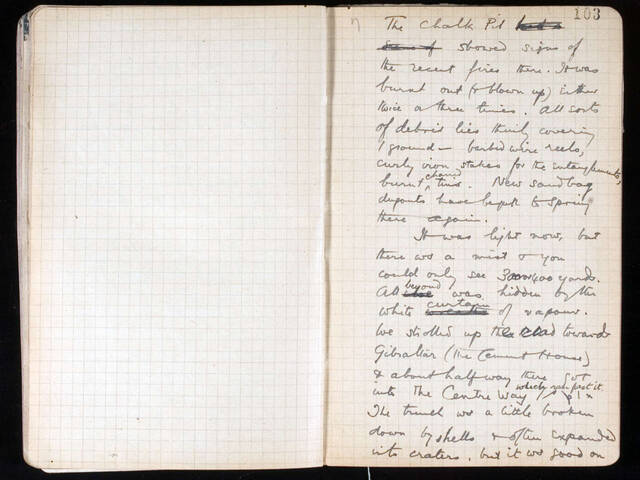 103
The Chalk Pit
showed signs of
the recent fires there. It was
burnt out (& blown up) either
twice or three times. All sorts
of debris lies thinly covering
/ ground – barbed wire reels,
curly iron stakes for the entanglements,
burnt, charred tins. New sandbag
dugouts have begun to spring
there again.
It was light now, but
there was a mist & you
could only see 300 or 400 yards.
All beyond was hidden by the
white curtain of vapour.
We strolled up the road towards
Gibraltar (The Cement House)
& about half way there got
into The Centre Way which ran past it.
The trench was a little broken
down by shells & often expanded
into craters, but it was good on